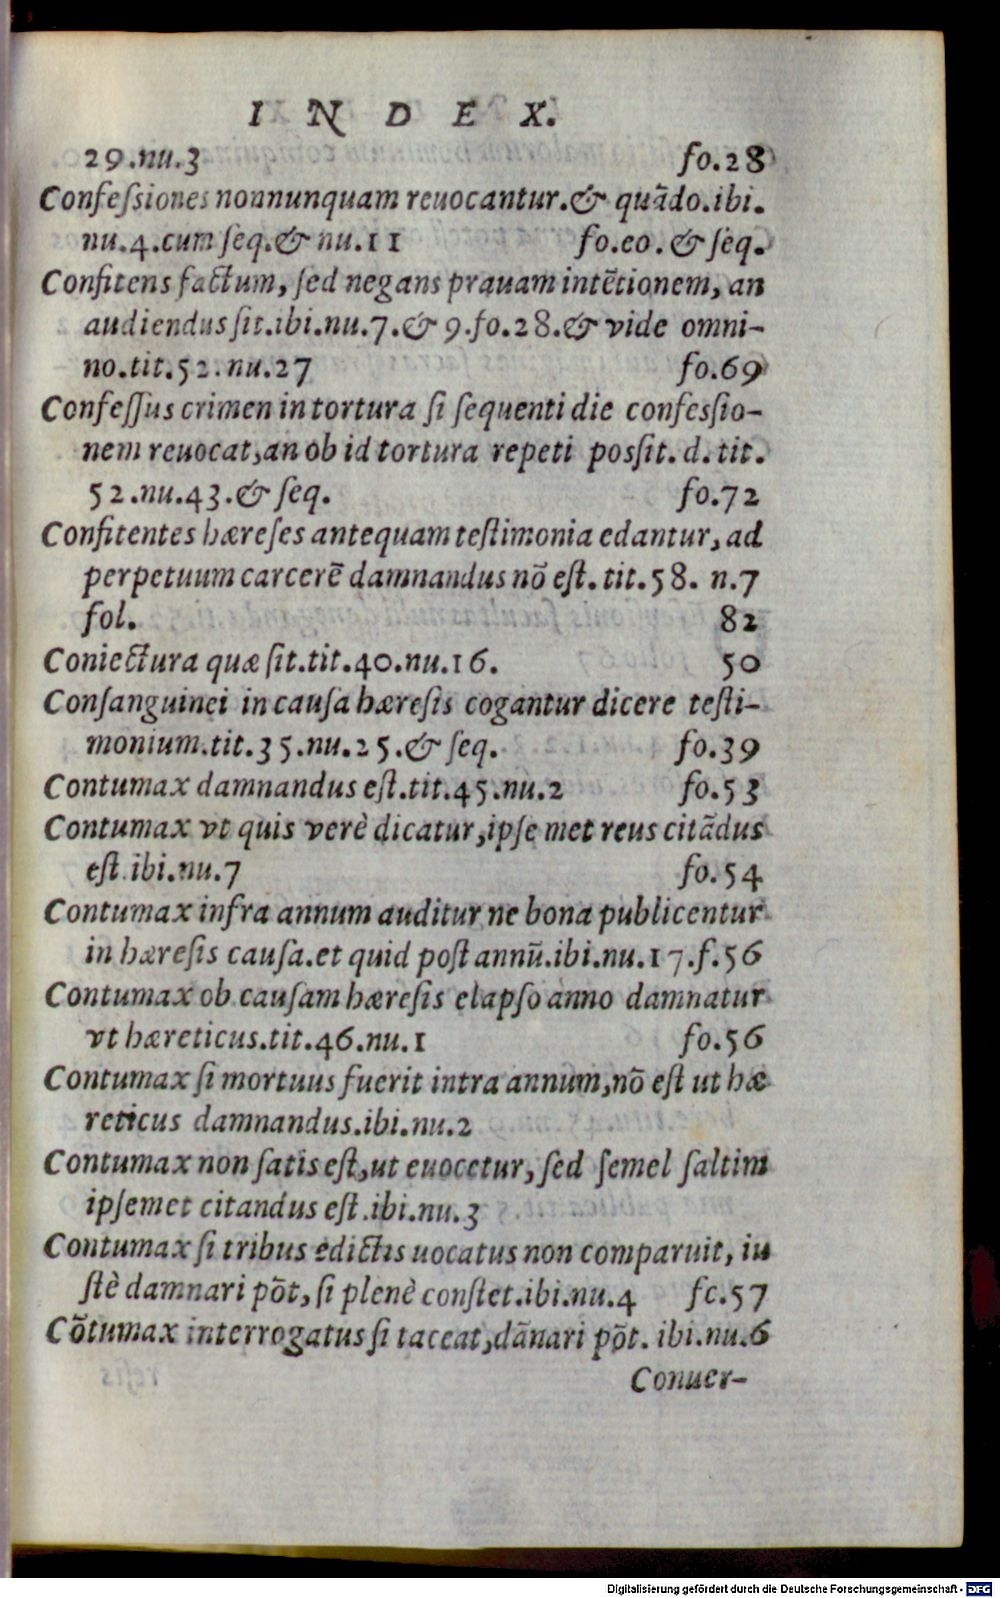 INDEX.
29.nu.3 fo.28
Confeſsiones nonnunquam reuocantur.& quãdo.ibi.
nu.4.cum ſeq.& nu.11 fo.eo.& ſeq.
Confitens factum, ſed negans prauam intẽtionem, an
audiendus ſit.ibi.nu.7.& 9.fo.28.& vide omni-
no.tit.52.nu.27 fo.69
Confeſſus crimen in tortura ſi ſequenti die confeſsio-
nem reuocat,an ob id tortura repeti poſsit. d. tit.
52.nu.43.& ſeq. fo.72
Confitentes hæreſes antequam teſtimonia edantur, ad
perpetuum carcerẽ damnandus nõ eſt. tit.58. n.7
fol. 82
Coniectura quæ ſit.tit.40.nu.16. 50
Conſanguinei in cauſa hæreſis cogantur dicere teſti-
monium.tit.35.nu.25.& ſeq. fo.39
Contumax damnandus eſt.tit.45.nu.2 fo.53
Contumax vt quis verè dicatur,ipſe met reus citãdus
eſt.ibi.nu.7 fo.54
Contumax infra annum auditur ne bona publicentur
in hæreſis cauſa.et quid poſt annũ.ibi.nu.17.f.56
Contumax ob cauſam hæreſis elapſo anno damnatur
vt hæreticus.tit.46.nu.1 fo.56
Contumax ſi mortuus fuerit intra annum,nõ eſt ut hæ
reticus damnandus.ibi.nu.2
Contumax non ſatis eſt,ut euocetur, ſed ſemel ſaltim
ipſemet citandus eſt.ibi.nu.3
Contumax ſi tribus edictis uocatus non comparuit, iu
ſtè damnari põt, ſi plenè conſtet.ibi.nu.4 fc.57
Cõtumax interrogatus ſi taceat,dãnari põt. ibi.nu.6
Conuer-
Digitalisierung gefördert durch die Deutsche Forschungsgemeinschaft - DFG